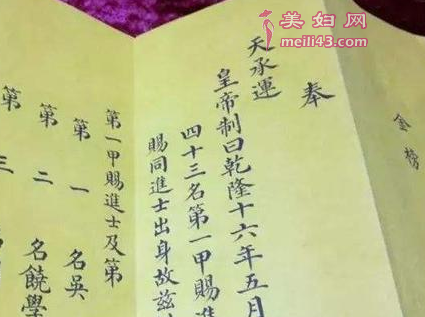 美妇网
meili43.com
金榜
奉
天承運
皇帝制曰乾隆十六年五月
四十三名第一甲賜進
賜同進士出身故茲
第一甲賜進士及第
第一名吳
第二名饒學
第三